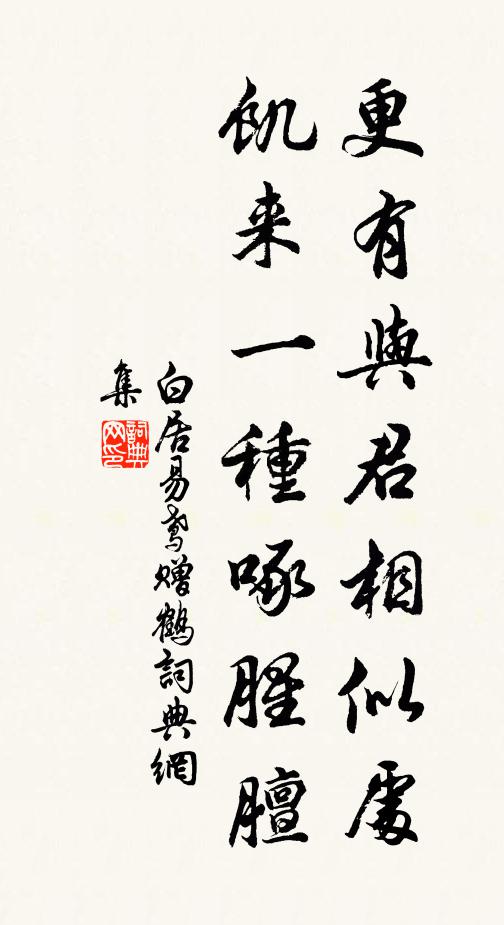 更有與君相似處
飢来一種啄腥膻
白居易鸢贈鶴詞典網
集
詞典
网印